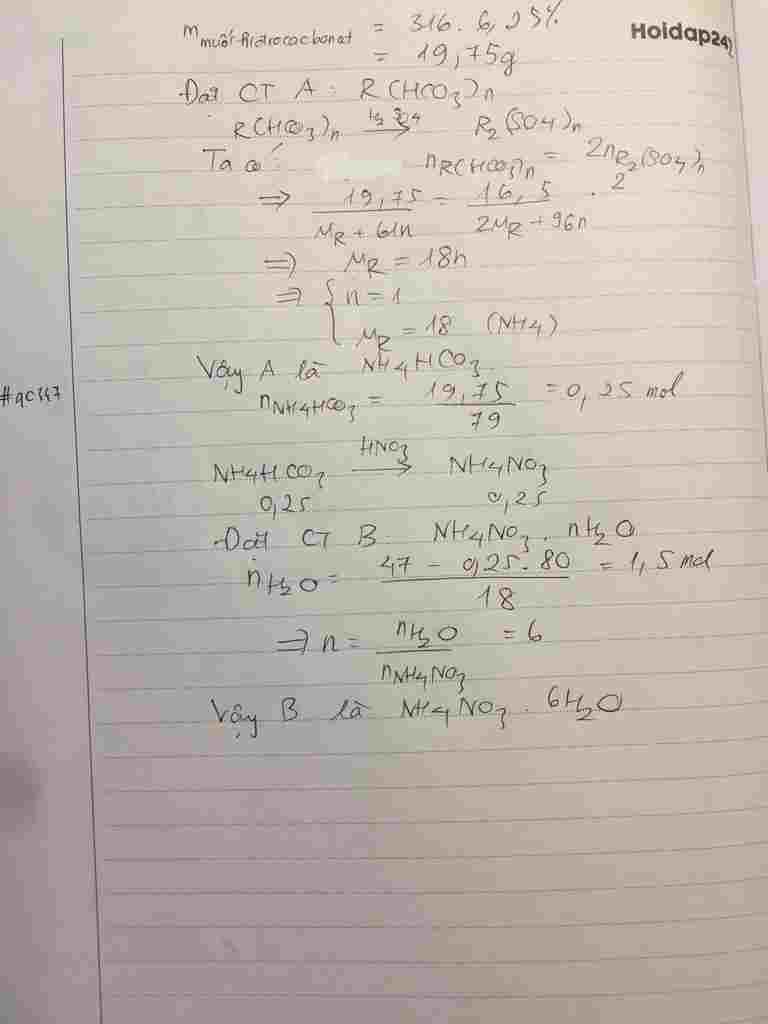 m muối hiđrocacbonat = 316. 6,25%
Hoidap247
= 19,75g
Đặt CT A : R(HCO3)n
R(HCO3)n H2SO4→ R2(SO4)n
Ta có: nR(HCO3)n = 2nR2(SO4)n
=> 19,75 / MR + 61n = 16,5 / 2MR + 96n . 2
=> MR = 18n
=> { n = 1
MR = 18 (NH4)
Vậy A là NH4HCO3
#qc347
nNH4HCO3 = 19,75 / 79 = 0,25 mol
NH4HCO3 HNO3→ NH4NO3
0,25 0,25
Đặt CT B NH4NO3 . nH2O
nH2O = 47 - 0,25.80 / 18 = 1,5 mol
=> n = nH2O / nNH4NO3 = 6
Vậy B là NH4NO3 . 6H2O